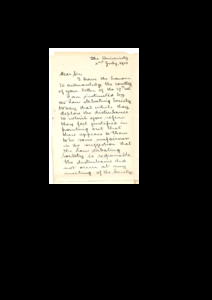 The University
2nd July, 19
Dear Sir
I have the honour
to acknowledge the receipt
of your letter of the 17th ult.
I am instructed by
the Law Debating Society
to say that while they
deplore the disturbance
to which you refer
they feel justified in
pointing out that
there appears to them
to be some unfairness
in the suggestion that
the Law Debating
Society is responsible
The disturbance did
not occur at any
meeting of the Society